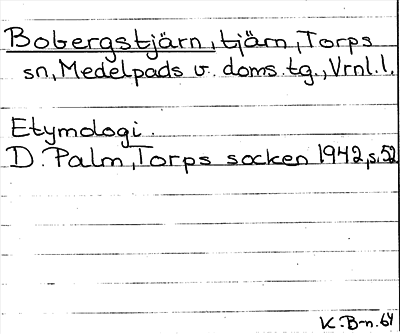 Bobergstjärn, tjärn, Torps
sn, Medelpads v. doms. tg., Vrnl. l.
Etymologi.
D. Palm, Torps socken 1942, s. 52
K. B-n. 64